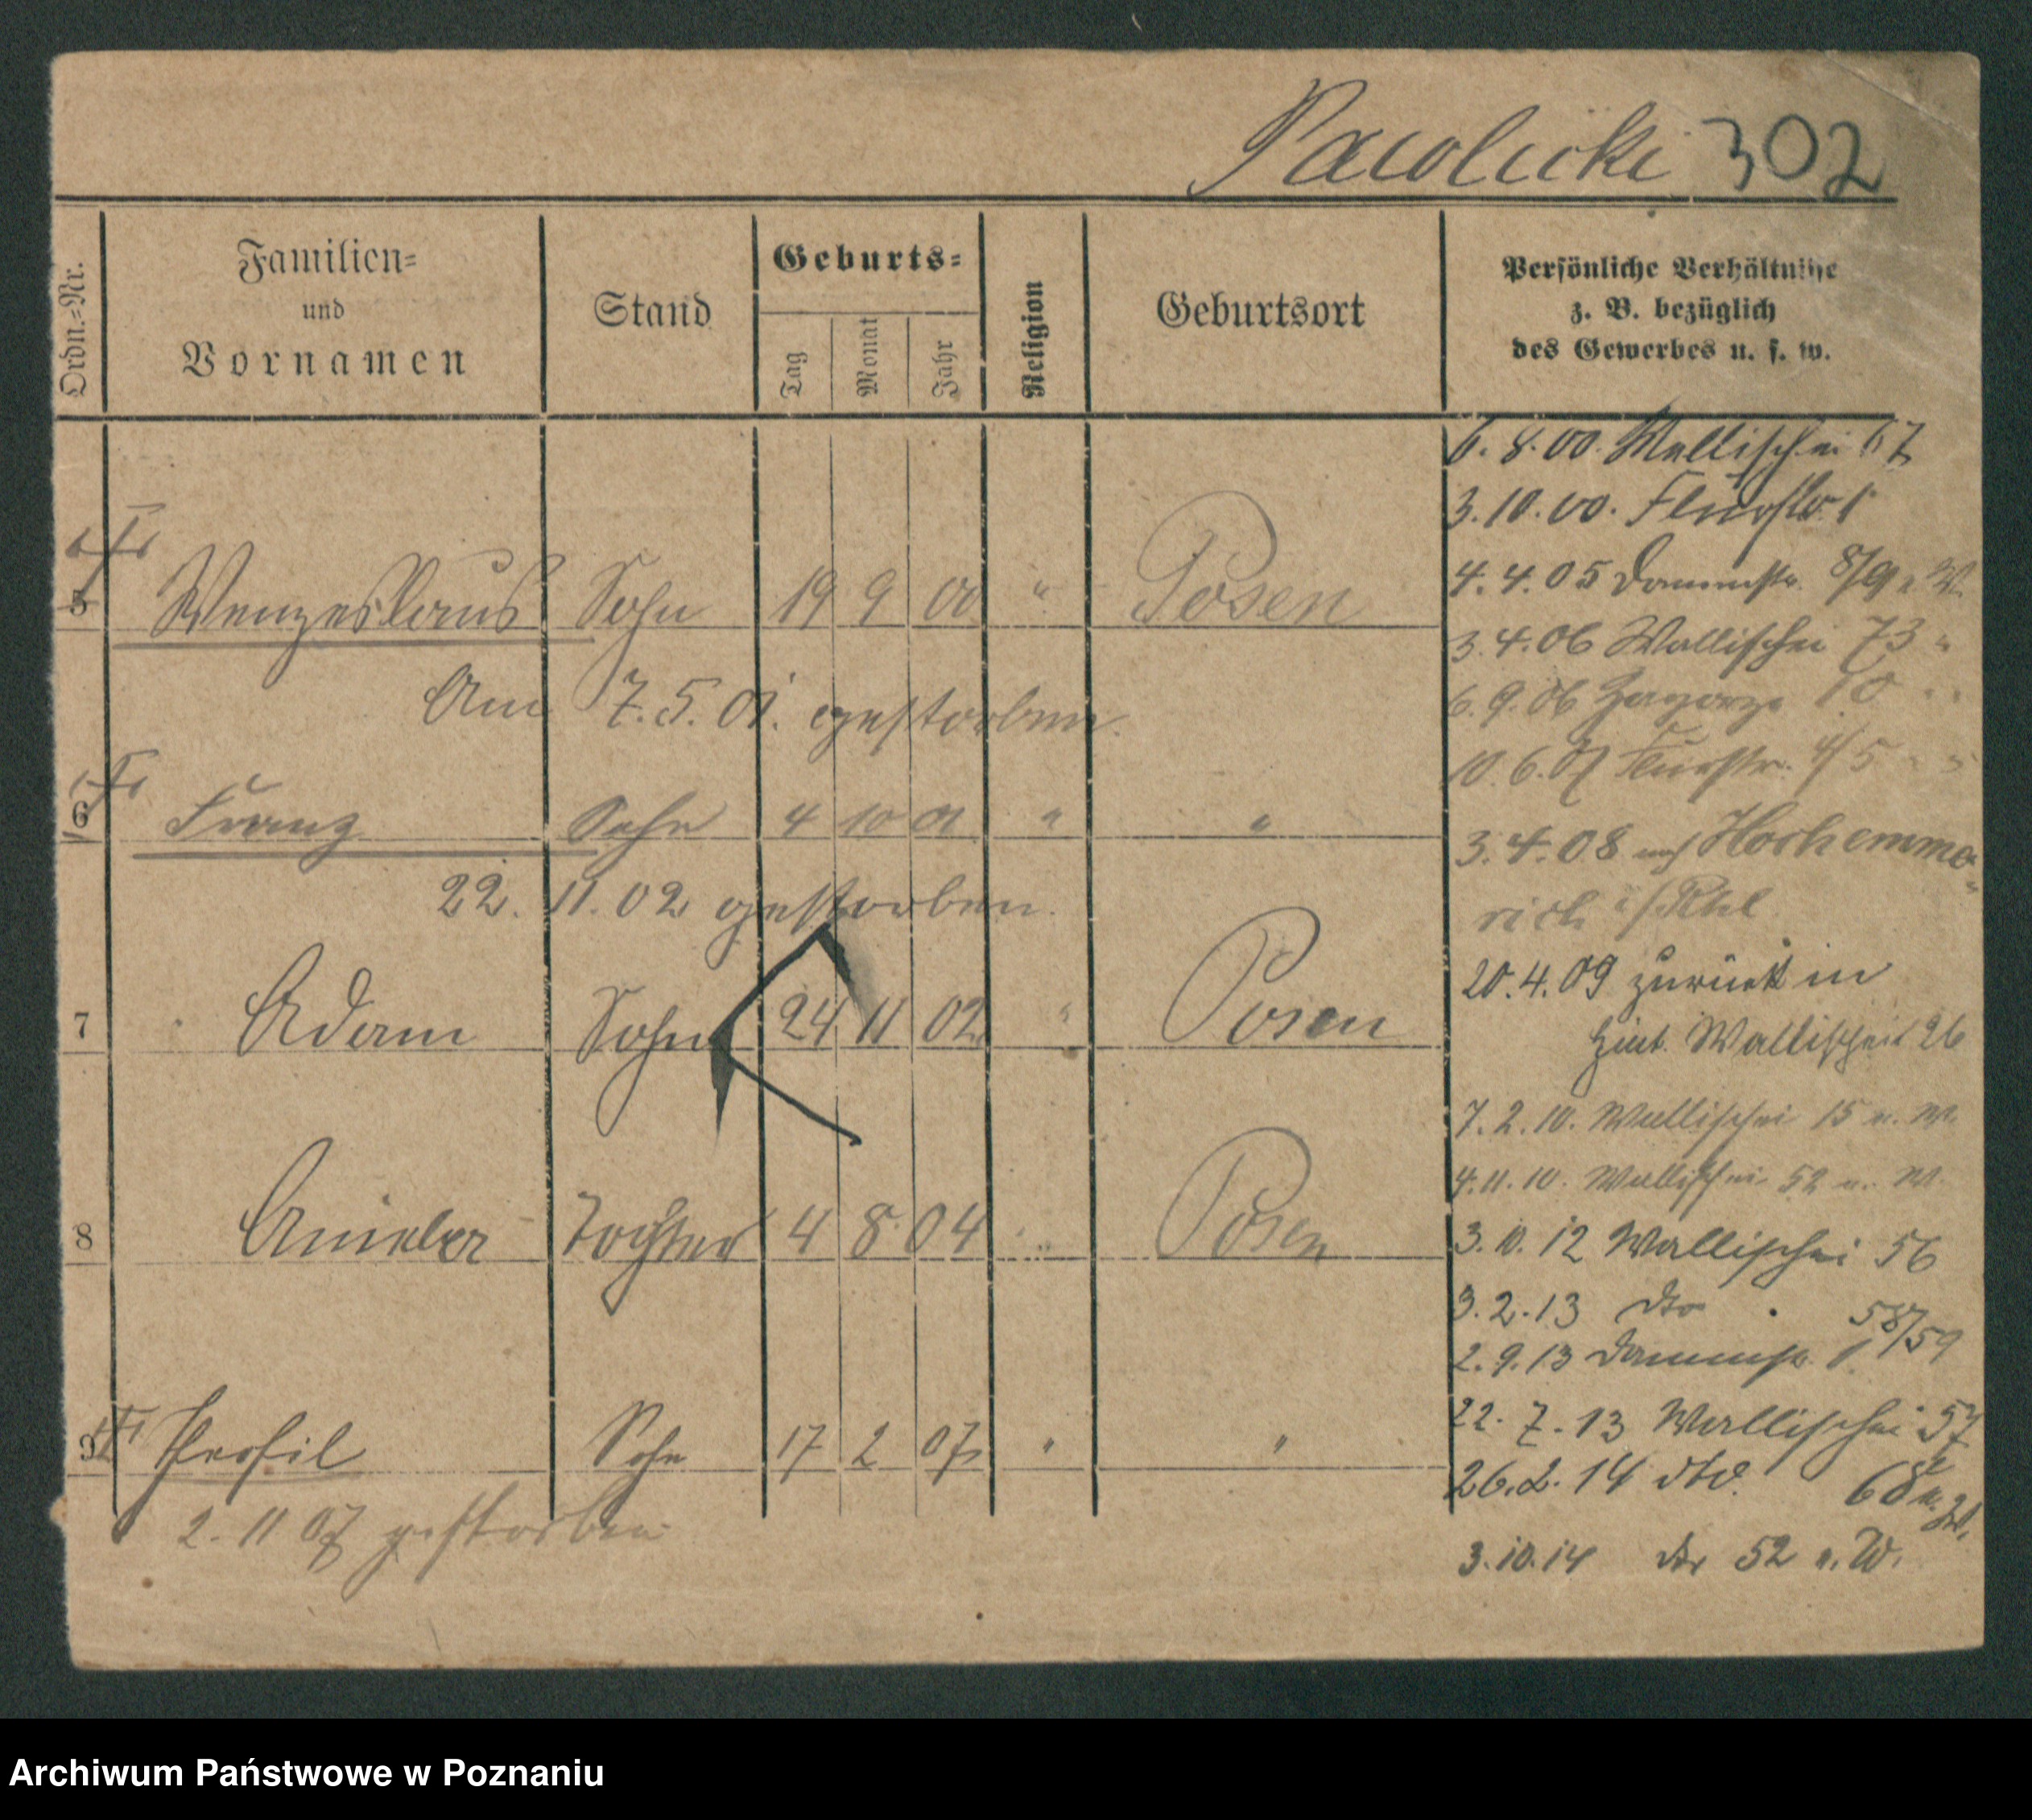 Pawlicki 302
Ordn.=Nr.
Familien=
und
Vornamen
Stand
Geburts=
Tag
Monat
Jahr
Religion
Geburtsort
Persönliche Verhältnisse
z. B. bezüglich
des Gewerbes u. s. w.
5 Wenzeslaus Sohn 19 9 00 " Posen
Am 7.5.01. gestorben.
6 Franz Sohn 4 10 01 " "
22. 11. 02 gestorben.
7 Adam Sohn 24 11 02 " Posen
8 Tochter 4 8 04 " Posen
9 Sohn 17 2 07 " "
2. 11 07 gestorben
6. 8. 00. Wallischei 67
3. 10. 00. Flurstr. 1
4. 4. 05 Dammstr. 8/9 u. W.
3. 4. 06 Wallischei 73 "
6. 9. 06 Zagorze 10 " "
10. 6. 07 Flurstr. 4/5 " "
3. 4. 08 nach Hochemme-
rich
20. 4. 09 zurück in
Hint. Wallischei 26
7. 2. 10. Wallischei 15 u. W.
4. 11. 10. Wallischei 52 u. W.
3. 10. 12 Wallischei 56
3. 2. 13 dto 58/59
2. 9. 13 Dammstr. 1
22. 7. 13 Wallischei 57
26. 2. 14 dto. 68 u. W.
3. 10. 14 dto 52 u. W.
Archiwum Państwowe w Poznaniu